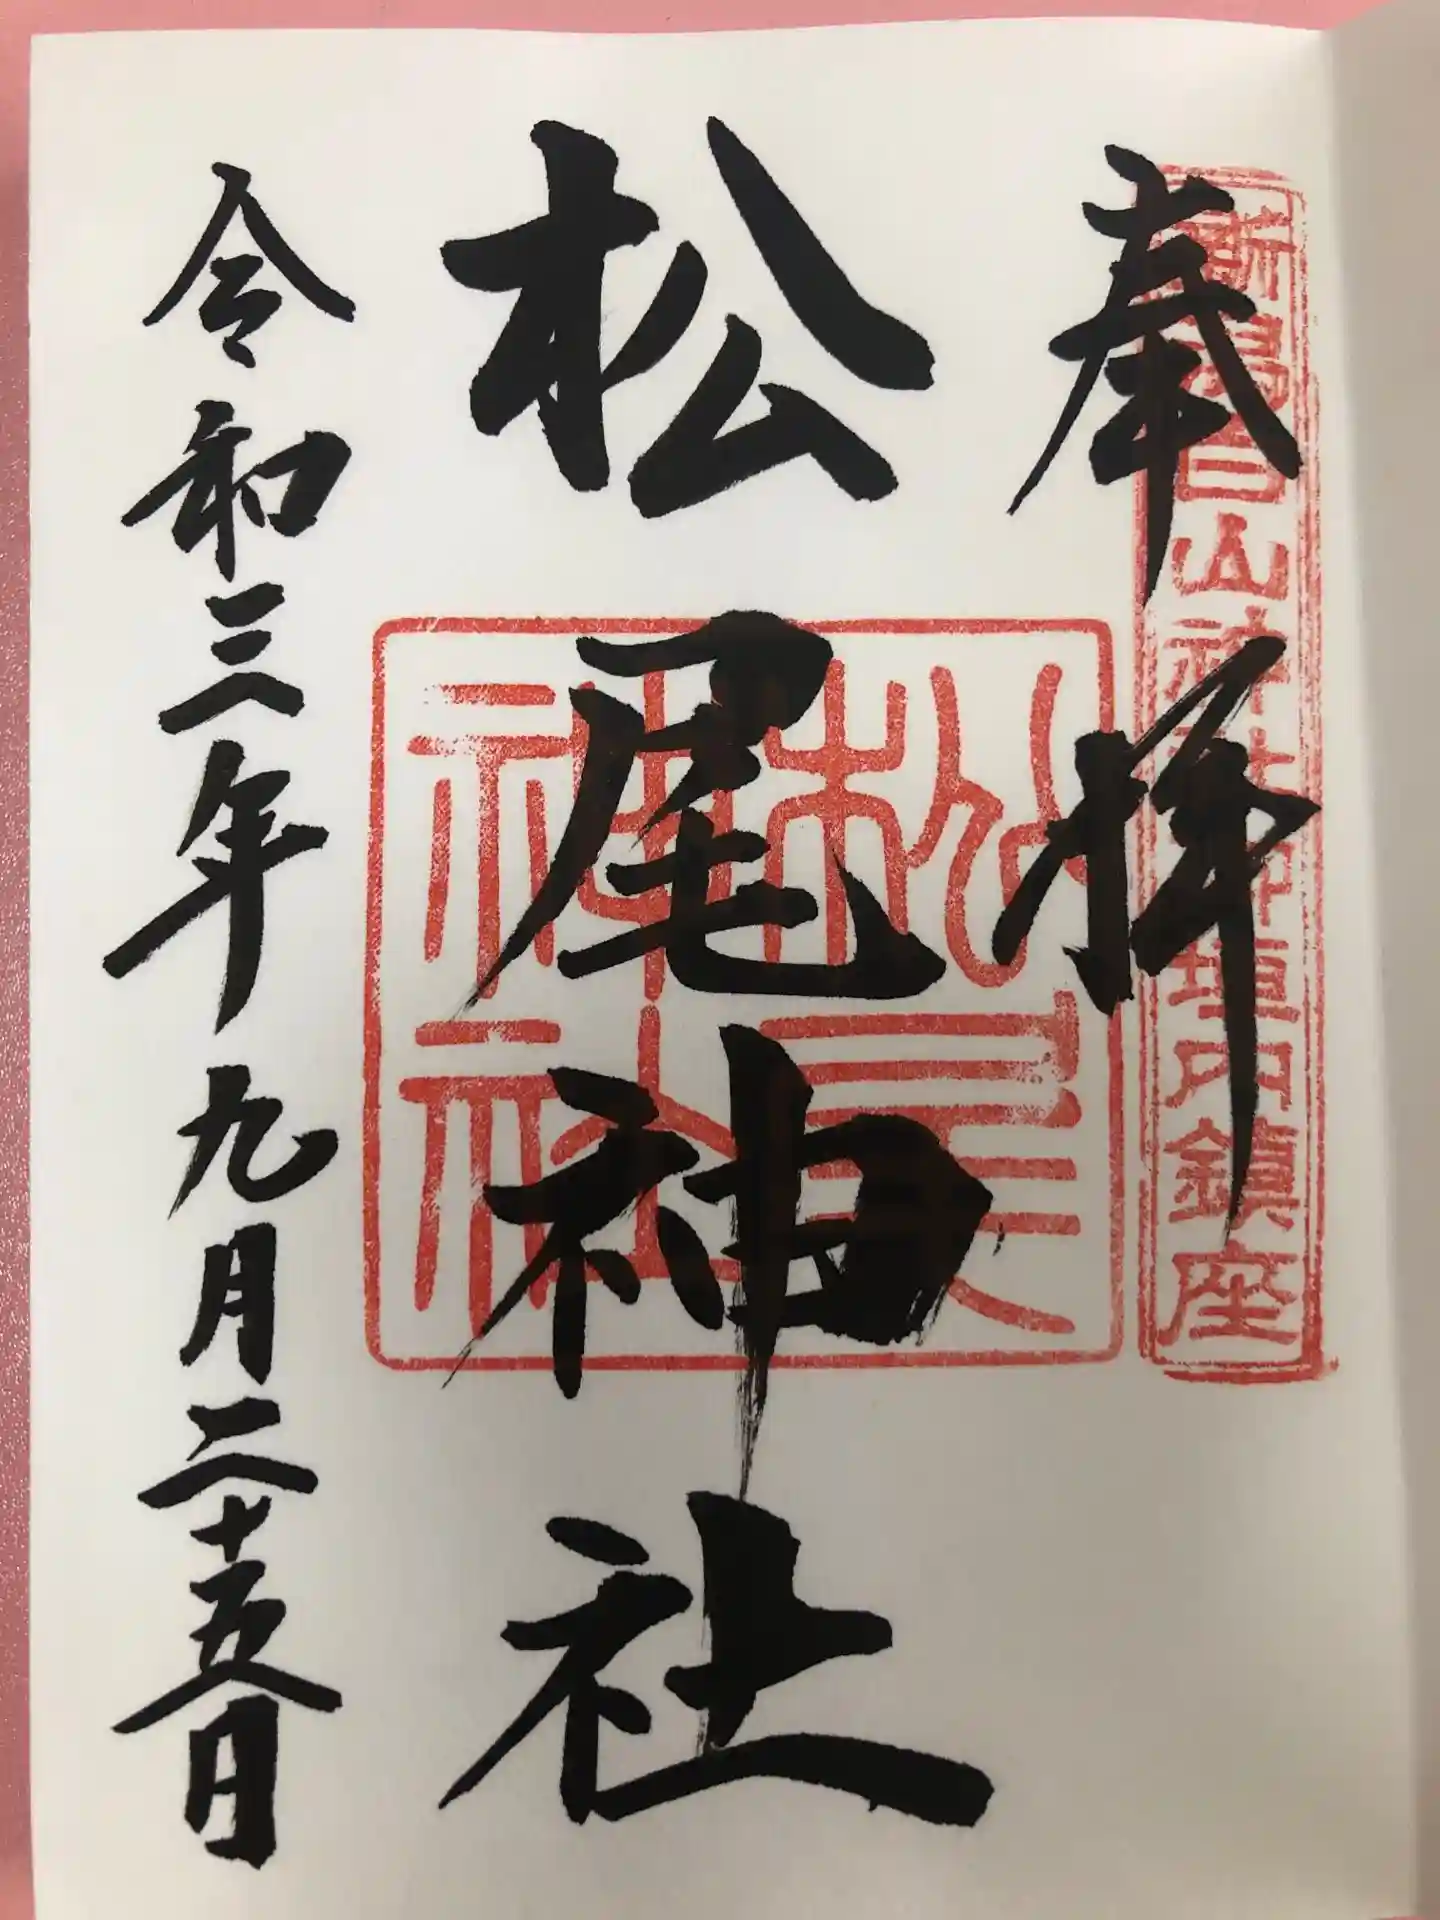 奉拝
新潟白山神社神垣内鎮座
松尾神社
松尾神社
令和三年九月二十五日